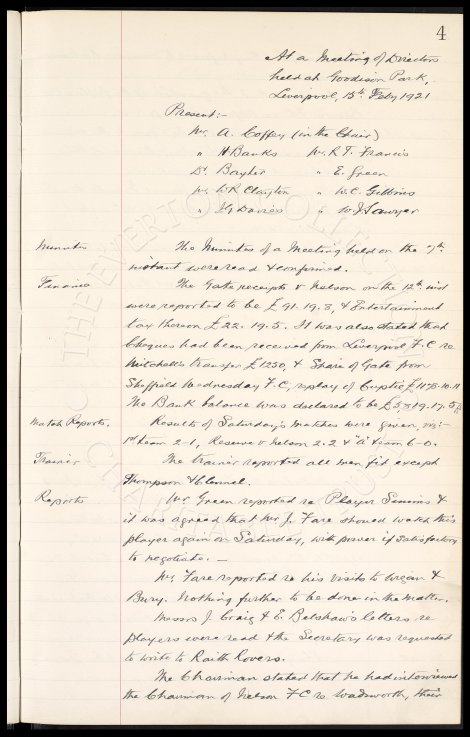 4
At a Meeting of Directors
held at Goodison Park,
Liverpool, 15th Feby 1921
Present:-
Mr. A. Coffey (in the Chair)
" H Banks Mr. R. T. Francis
Dr. Baxter " E. Green
Mr. W R Clayton " W. C. Gibbins
" Davies " W. J. Sawyer
Minutes The Minutes of a Meeting held on the 7th
instant were read & confirmed.
Finance The Gate receipts v Nelson on the 12th inst
were reported to be £91.19.3, & Entertainment
tax thereon £22.19.5. It was also stated that
Cheques had been received from Liverpool F.C re
Mitchell's transfer £1250, & Share of Gate from
Sheffield Wednesday F.C, replay of Cuptie
The Bank balance was declared to be
Match Reports. Results of Saturday's matches were given, viz:-
1st team 2-1, Reserve v Nelson 2-2 & "A" team 6-0.
Trainer The trainer reported all men fit except
Thompson &
Reports Mr Green reported re Player Simms &
it was agreed that Mr J. Fare should watch this
player again on Saturday, with power if satisfactory
to negotiate. -
Mr Fare reported re his visits to Wigan &
Bury. Nothing further to be done in the matter.
Messrs J. Craig & E. Belshaw's letters re
players were read & the Secretary was requested
to write to Raith Rovers.
The Chairman stated that he had interviewed
the Chairman of Nelson F C re Wadsworth, their
THE EVERTON COLLECTION
CHARITABLE TRUST